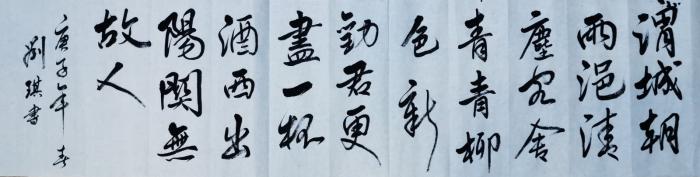 渭城朝
雨浥清
塵客舍
青青柳
色新
勸君更
盡一杯
酒西出
陽關無
故人
庚子年春
劉琪書